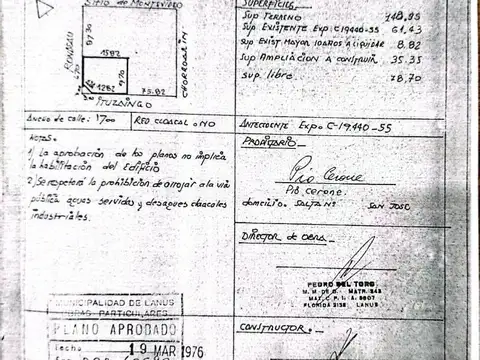 SITIO DE MONTEVIDEO
RONDEAU
87.30
15.82
CHORROARIN
4.20
9.70
12.82
75.82
ITUZAINGO
SUPERFICIES
SUP TERRENO 148,95
SUP EXISTENTE Exp. C-19440-55 61,43
SUP EXIST MAYOR 10 AÑOS A LIQUIDAR 8.82
SUP AMPLIACION A CONSTRUIR 35.35
SUP. libre 78,70
ANCHO de calle: 17oo RED CLOACAL: NO
ANTECEDENTE Exp. C-19,440-55
NOTAS.
1) La aprobación de los planos no implica
la habilitación del Edificio
2) Se respetará la prohibición de arrojar a la vía
pública aguas servidas y desagues cloacales
industriales.
PROPIETARIO
Pio Cerone
Pio Cerone.
domicilio. SAN JOSE
DIRECTOR de OBRA
PEDRO DEL TORO
M. M. DE O. MATR. 243
MAT. C. P. I. A. 9607
FLORIDA 2135 LANUS
MUNICIPALIDAD DE LANUS
OBRAS PARTICULARES
PLANO APROBADO
fecha 19 MAR 1976
CONSTRUCTOR.